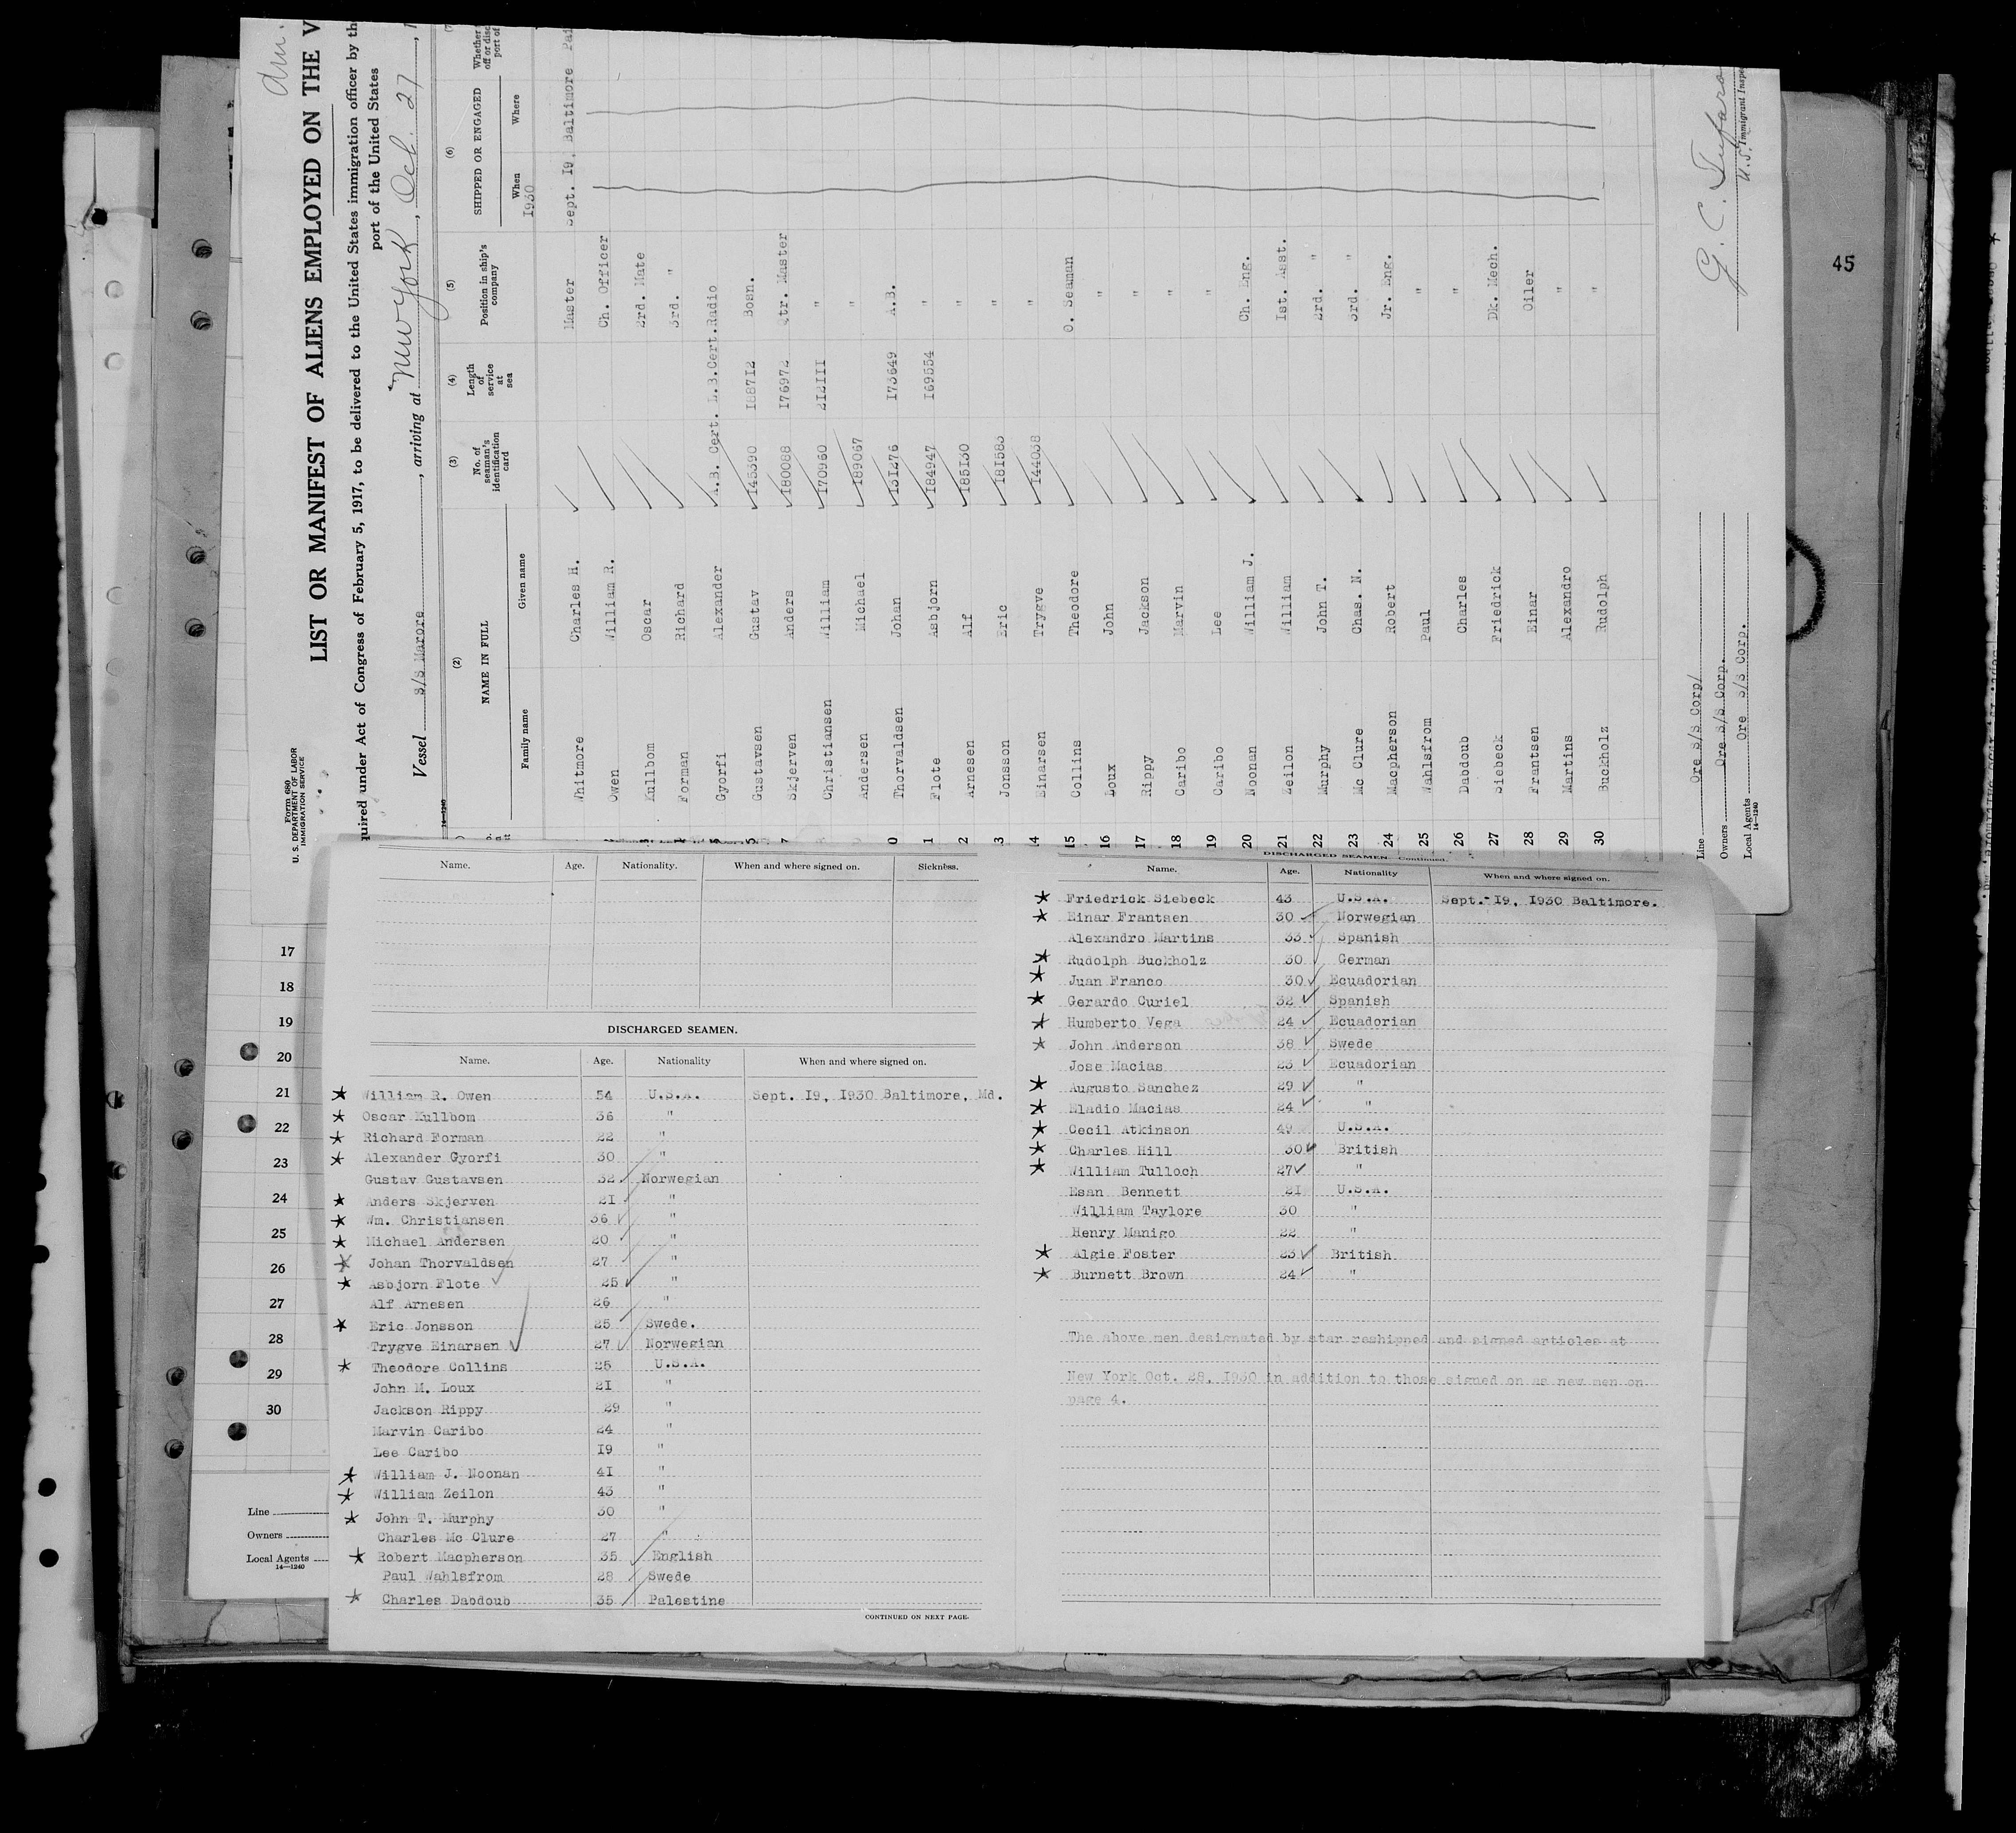 Adm.
Form 680
U. S. DEPARTMENT OF LABOR
IMMIGRATION SERVICE
LIST OR MANIFEST OF ALIENS EMPLOYED ON THE V
quired under Act of Congress of February 5, 1917, to be delivered to the United States immigration officer by th
port of the United States
Vessel S/S Marore, arriving at New York, Oct. 27,
14—1240
(2) (3) (4) (5) (6) (7)
NAME IN FULL No. of seaman's identification card Length of service at sea Position in ship's company SHIPPED OR ENGAGED Whether off or disc port of
Family name Given name When Where
1930
Whitmore Charles H. Master Sept. 19, Baltimore Pai
Owen William R. Ch. Officer
3 Kullbom Oscar 2rd. Mate
4 Forman Richard 3rd. "
5 Gyorfi Alexander A.B. Cert. L.B.Cert.Radio
Gustavsen Gustav 145390 188712 Bosn.
7 Skjerven Anders 180088 176972 Qtr. Master
Christiansen William 170960 212111 "
Andersen Michael 189067 "
0 Thorvaldsen Johan 131276 173649 A.B.
1 Flote Asbjorn 184947 169554 "
2 Arnesen Alf 185130 "
3 Jonsson Eric 181583 "
14 Einarsen Trygve 144038 "
15 Collins Theodore O. Seaman
16 Loux John "
17 Rippy Jackson "
18 Caribo Marvin "
19 Caribo Lee "
20 Noonan William J. Ch. Eng.
21 Zeilon William Ist. Asst.
22 Murphy John T. 2rd. "
23 Mc Clure Chas. N. 3rd. "
24 Macpherson Robert Jr. Eng.
25 Wahlsfrom Paul "
26 Dabdoub Charles "
27 Siebeck Friedrick Dk. Mech.
28 Frantsen Einar Oiler
29 Martins Alexandro "
30 Buckholz Rudolph "
Line Ore S/S Corp/
Owners Ore S/S Corp.
Local Agents Ore S/S Corp.
14—1240
G. C. Tufaro
U.S. Immigrant Inspe
45
17
18
19
20
21
22
23
24
25
26
27
28
29
30
Line
Owners
Local Agents
14—1240
Name. Age. Nationality. When and where signed on. Sickness.
DISCHARGED SEAMEN.
Name. Age. Nationality When and where signed on.
* William R. Owen 54 U.S.A. Sept. 19, 1930 Baltimore, Md.
* Oscar Kullbom 36 "
* Richard Forman 22 "
* Alexander Gyorfi 30 "
Gustav Gustavsen 32 Norwegian
* Anders Skjerven 21 "
* Wm. Christiansen 36 "
* Michael Andersen 20 "
* Johan Thorvaldsen 27 "
* Asbjorn Flote 25 "
Alf Arnesen 26 "
* Eric Jonsson 25 Swede.
Trygve Einarsen 27 Norwegian
* Theodore Collins 25 U.S.A.
John M. Loux 21 "
Jackson Rippy 29 "
Marvin Caribo 24 "
Lee Caribo 19 "
* William J. Noonan 41 "
* William Zeilon 43 "
* John T. Murphy 30 "
Charles Mc Clure 27 "
* Robert Macpherson 35 English
Paul Wahlsfrom 28 Swede
* Charles Daodoub 35 Palestine
CONTINUED ON NEXT PAGE.
DISCHARGED SEAMEN—Continued.
Name. Age. Nationality When and where signed on.
* Friedrick Siebeck 43 U.S.A. Sept. 19, 1930 Baltimore.
* Einar Frantsen 30 Norwegian
Alexandro Martins 33 Spanish
* Rudolph Buckholz 30 German
* Juan Franco 30 Ecuadorian
* Gerardo Curiel 32 Spanish
* Humberto Vega 24 Ecuadorian
* John Anderson 38 Swede
Jose Macias 23 Ecuadorian
* Augusto Sanchez 29 "
* Eladio Macias 24 "
* Cecil Atkinson 49 U.S.A.
* Charles Hill 30 British
* William Tulloch 27 "
Esan Bennett 21 U.S.A.
William Taylore 30 "
Henry Manigo 22 "
* Algie Foster 23 British
* Burnett Brown 24 "
The above men designated by star reshipped and signed articles at
New York Oct. 28, 1930 in addition to those signed on as new men on
page 4.